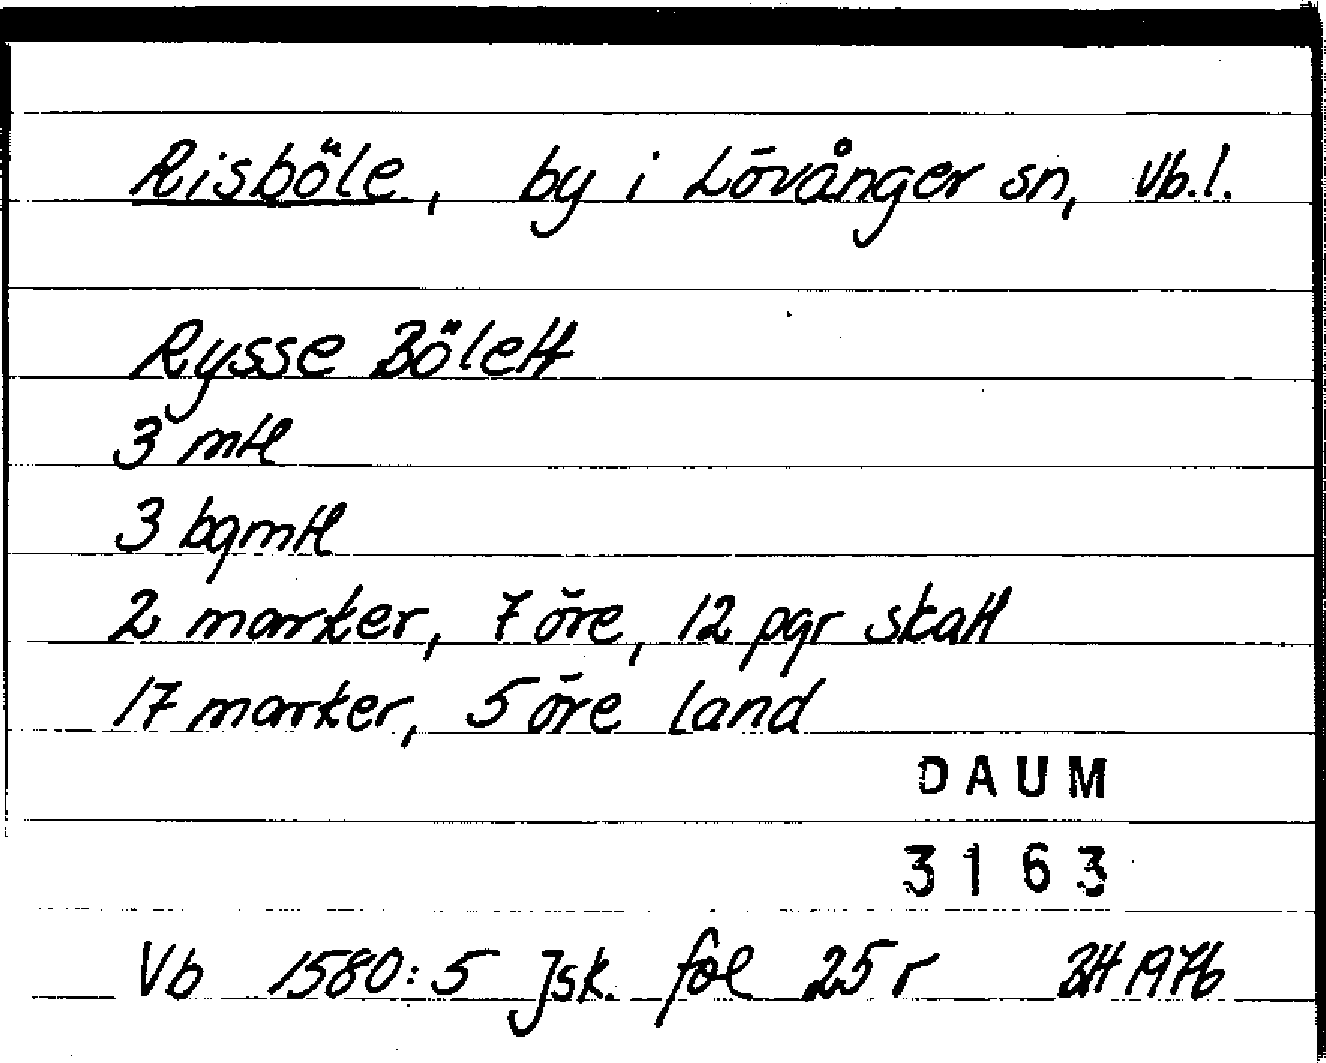 Risböle, by i Lövånger sn, Vb.l.
Rysse Bölett
3 mtl
3 bgmtl
2 marker, 7 öre, 12 pgr skatt
17 marker, 5 öre land
DAUM
3163
Vb 1580:5 Jsk. fol 25 r BH 1976